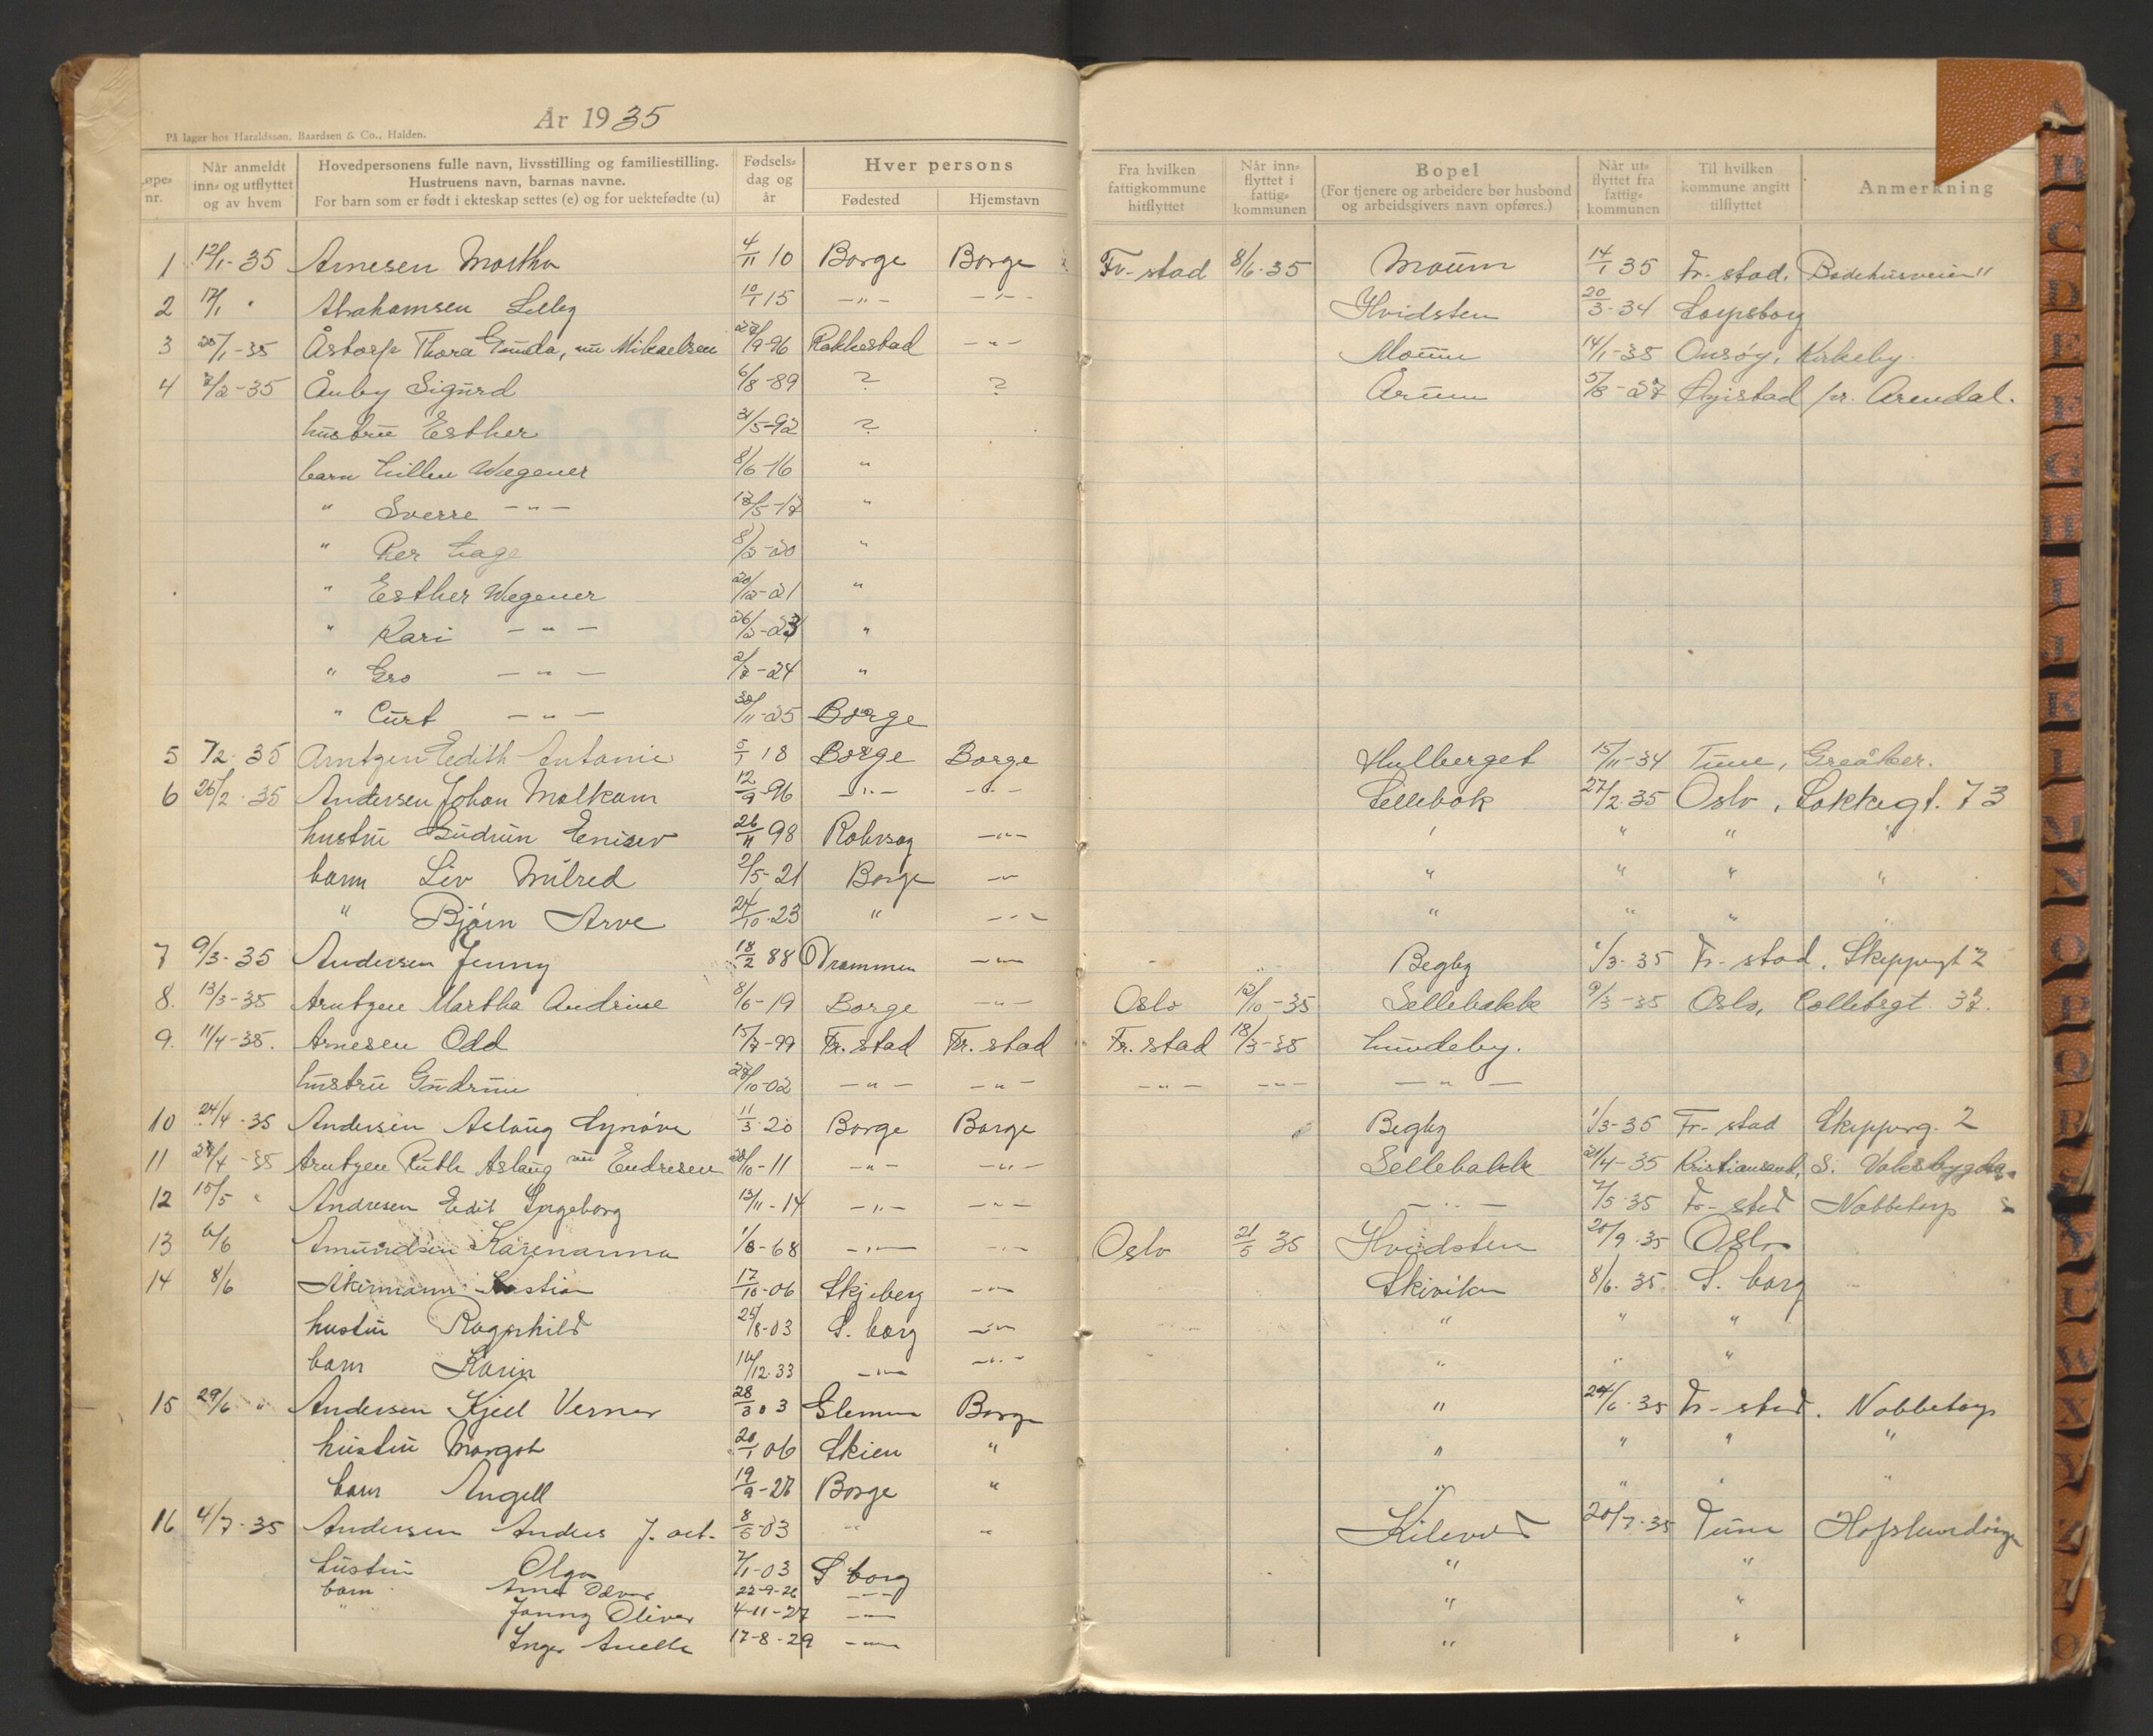 År 1935
På lager hos Haraldssøn, Baardsen & Co., Halden.
Løpe-nr. Når anmeldt inn- og utflyttet og av hvem Hovedpersonens fulle navn, livsstilling og familiestilling. Hustruens navn, barnas navne. For barn som er født i ekteskap settes (e) og for uektefødte (u) Fødsels-dag og år Hver persons Fødested Hjemstavn Fra hvilken fattigkommune hitflyttet Når inn-flyttet i fattig-kommunen Bopel (For tjenere og arbeidere bør husbond og arbeidsgivers navn opføres.) Når ut-flyttet fra fattig-kommunen Til hvilken kommune angitt tilflyttet Anmerkning
1 12/1-35 Arnesen Martha 4/11 10 Borge Borge Fr-stad 8/6-35 Moum 14/1 35 Fr-stad, Badehusveien 11
2 17/1 " Abrahamsen Lilly 10/1 15 -"- -"- Hvidsten 20/3-34 Sarpsborg
3 25/1-35 Åstorp Thora Gunda, nu Mikaelsen 27/9-96 Rakkestad -"- Moum 14/1-35 Onsøy, Kirkeby.
4 7/2-35 Ånby Sigurd 6/8-89 ? ? Årum 5/8-27 Øyistad pr. Arendal.
hustru Esther 31/5-92 ?
barn Lillen Wegener 8/6-16 "
" Sverre -"- 17/5-17 "
" Per Lage 8/2-20 "
" Esther Wegener 20/12-21 "
" Kari -"- 26/2-23 "
" Gro -"- 2/7-24 "
" Curt -"- 30/11-25 Borge
5 7/2-35 Arntzen Edith Antonie 5/1 18 Borge Borge Hulberget 15/11-34 Tune, Greåker.
6 26/2-35 Andersen Johan Malkom 12/9-96 -"- -"- Sellebak 27/2-35 Oslo, Lakkegt. 73
hustru Gudrun 26/11 98 Rolvsøy -"- " " " "
barn Liv Milred 2/5-21 Borge -"- " " " "
" Bjørn Arve 24/10-23 " -"- " " " "
7 9/3-35 Andersen Jenny 18/2 88 Drammen -"- Begby 1/3-35 Fr-stad, Skippergt 2
8. 13/3-35 Arntzen Martha Andrine 8/6-19 Borge -"- Oslo 12/10-35 Sellebakk 9/3-35 Oslo, Colletsgt. 37.
9. 11/4-35. Arnesen Odd 15/7-99 Fr.stad Fr.stad Fr.stad 18/3-35 Lundeby.
hustru Gudrun 27/10-02 -"- -"- -"- -"- -"-
10 24/4-35 Andersen Aslaug Synøve 11/3-20 Borge Borge Begby 1/3-35 Fr-stad Skipperg. 2
11 27/4-35 Arntzen Ruth Aslaug nu Endresen 28/10-11 -"- -"- Sellebakk 21/4-35 Kristiansand, S.
12 15/5 " Andresen Edit Ingeborg 13/11-14 -"- -"- -"- 7/5-35 Fr-stad Nabbetorp
13 6/6 Amundsen Karenanna 1/8-68 -"- -"- Oslo 21/5 35 Hvidsten 20/9-35 Oslo
14 8/6 Akermann Kristian 17/10-06 Skjeberg -"- Skiviken 8/6-35 S. borg
hustru Ragnhild 25/8-03 S. borg -"- " " "
barn Karin 14/12 33 -"- -"- " " "
15 29/6 " Andersen Kjell Verner 28/3 03 Glemmen Borge " 24/6-35 Fr-stad. Nabbetorp
hustru Margot 20/1 06 Skien " " " " "
barn Angell 19/9-28 Borge " " " " "
16 4/7-35 Andersen Anders J. arb. 8/5-03 " " 20/7-35 Tune
hustru Olga 7/1-03 S borg " "
barn 22-9-26 -"- "
" Jonny Oliver 4-11-27 -"- " "
Inger Anette 17-8-29 -"- " "